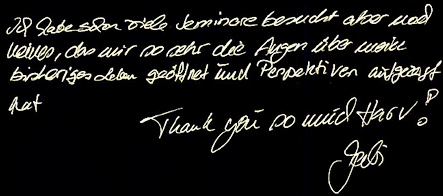 Ich habe schon viele Seminare besucht aber noch
keines, das mir so sehr die Augen über mein
bisheriges Leben geöffnet und Perspektiven aufgezeigt
hat
Thank you so much Harv!